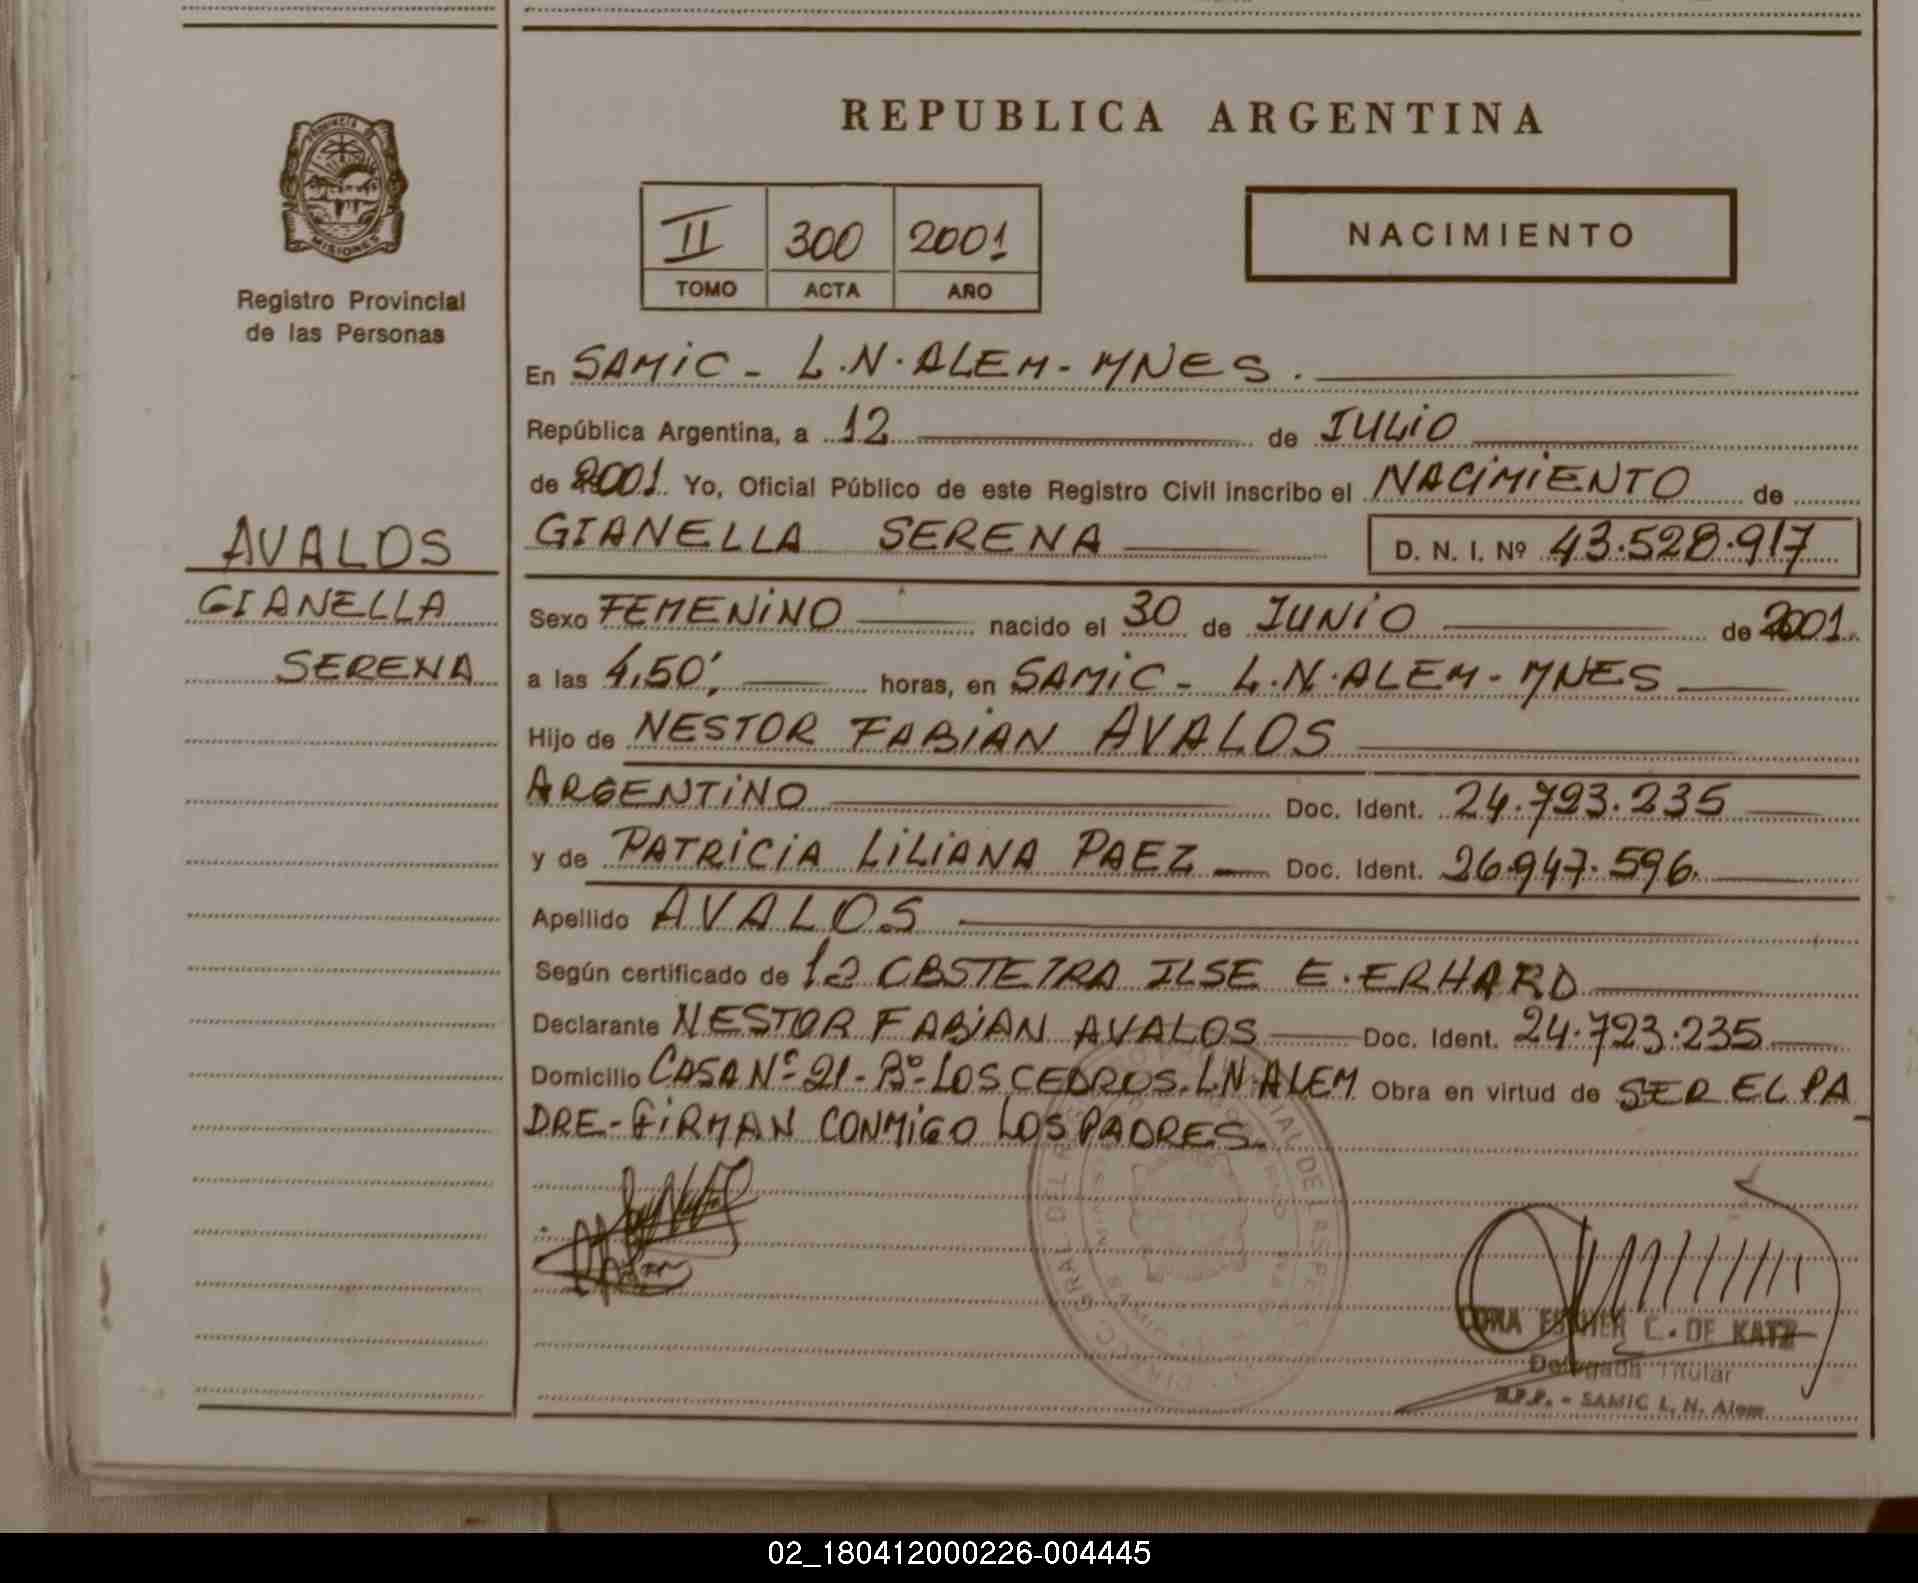 REPUBLICA ARGENTINA
PROVINCIA DE
MISIONES
Registro Provincial
de las Personas
II 300 2001
TOMO ACTA AÑO
NACIMIENTO
En SAMIC - L.N. ALEM - MNES.
República Argentina, a 12 de JULIO
de 2001. Yo, Oficial Público de este Registro Civil inscribo el NACIMIENTO de
AVALOS
GIANELLA SERENA D. N. I. Nº 43.528.917
GIANELLA
SERENA
Sexo FEMENINO nacido el 30 de JUNIO de 2001
a las 4,50', horas, en SAMIC - L.N. ALEM - MNES
Hijo de NESTOR FABIAN AVALOS
ARGENTINO Doc. Ident. 24.723.235
y de PATRICIA LILIANA PAEZ Doc. Ident. 26.947.596.
Apellido AVALOS
Según certificado de la OBSTETRA ILSE E. ERHARD
Declarante NESTOR FABIAN AVALOS Doc. Ident. 24.723.235
Domicilio CASA Nº 21 - Bº LOS CEDROS. L.N. ALEM Obra en virtud de SER EL PA-
DRE - FIRMAN CONMIGO LOS PADRES.
DORA ESTHER C. DE KATZ
Delegada Titular
R.P.P. - SAMIC L. N. Alem
02_180412000226-004445